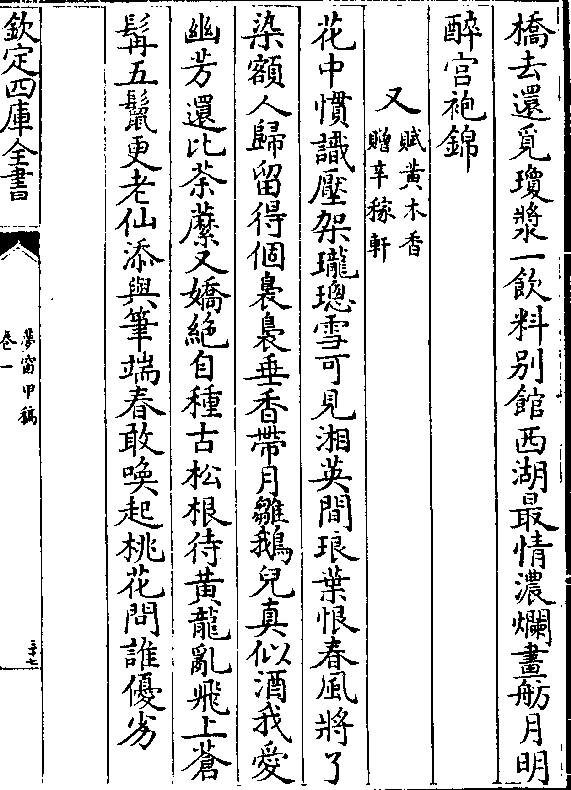 橋去還覓瓊漿一飲料別館西湖最情濃爛畫舫月明
醉宫袍錦
又賦黄木香
贈辛稼軒
花中慣識壓架瓏璁雪可見湘英間琅葉恨春風將了
染額人歸留得個裊裊垂香帶月鶵鵝兒真似酒我愛
幽芳還比荼蘼又嬌絶自種古松根待黄龍亂飛上蒼
髯五鬛更老仙添與筆端春敢喚起桃花問誰優劣
欽定四庫全書
夢窗甲稿
卷一
三十七